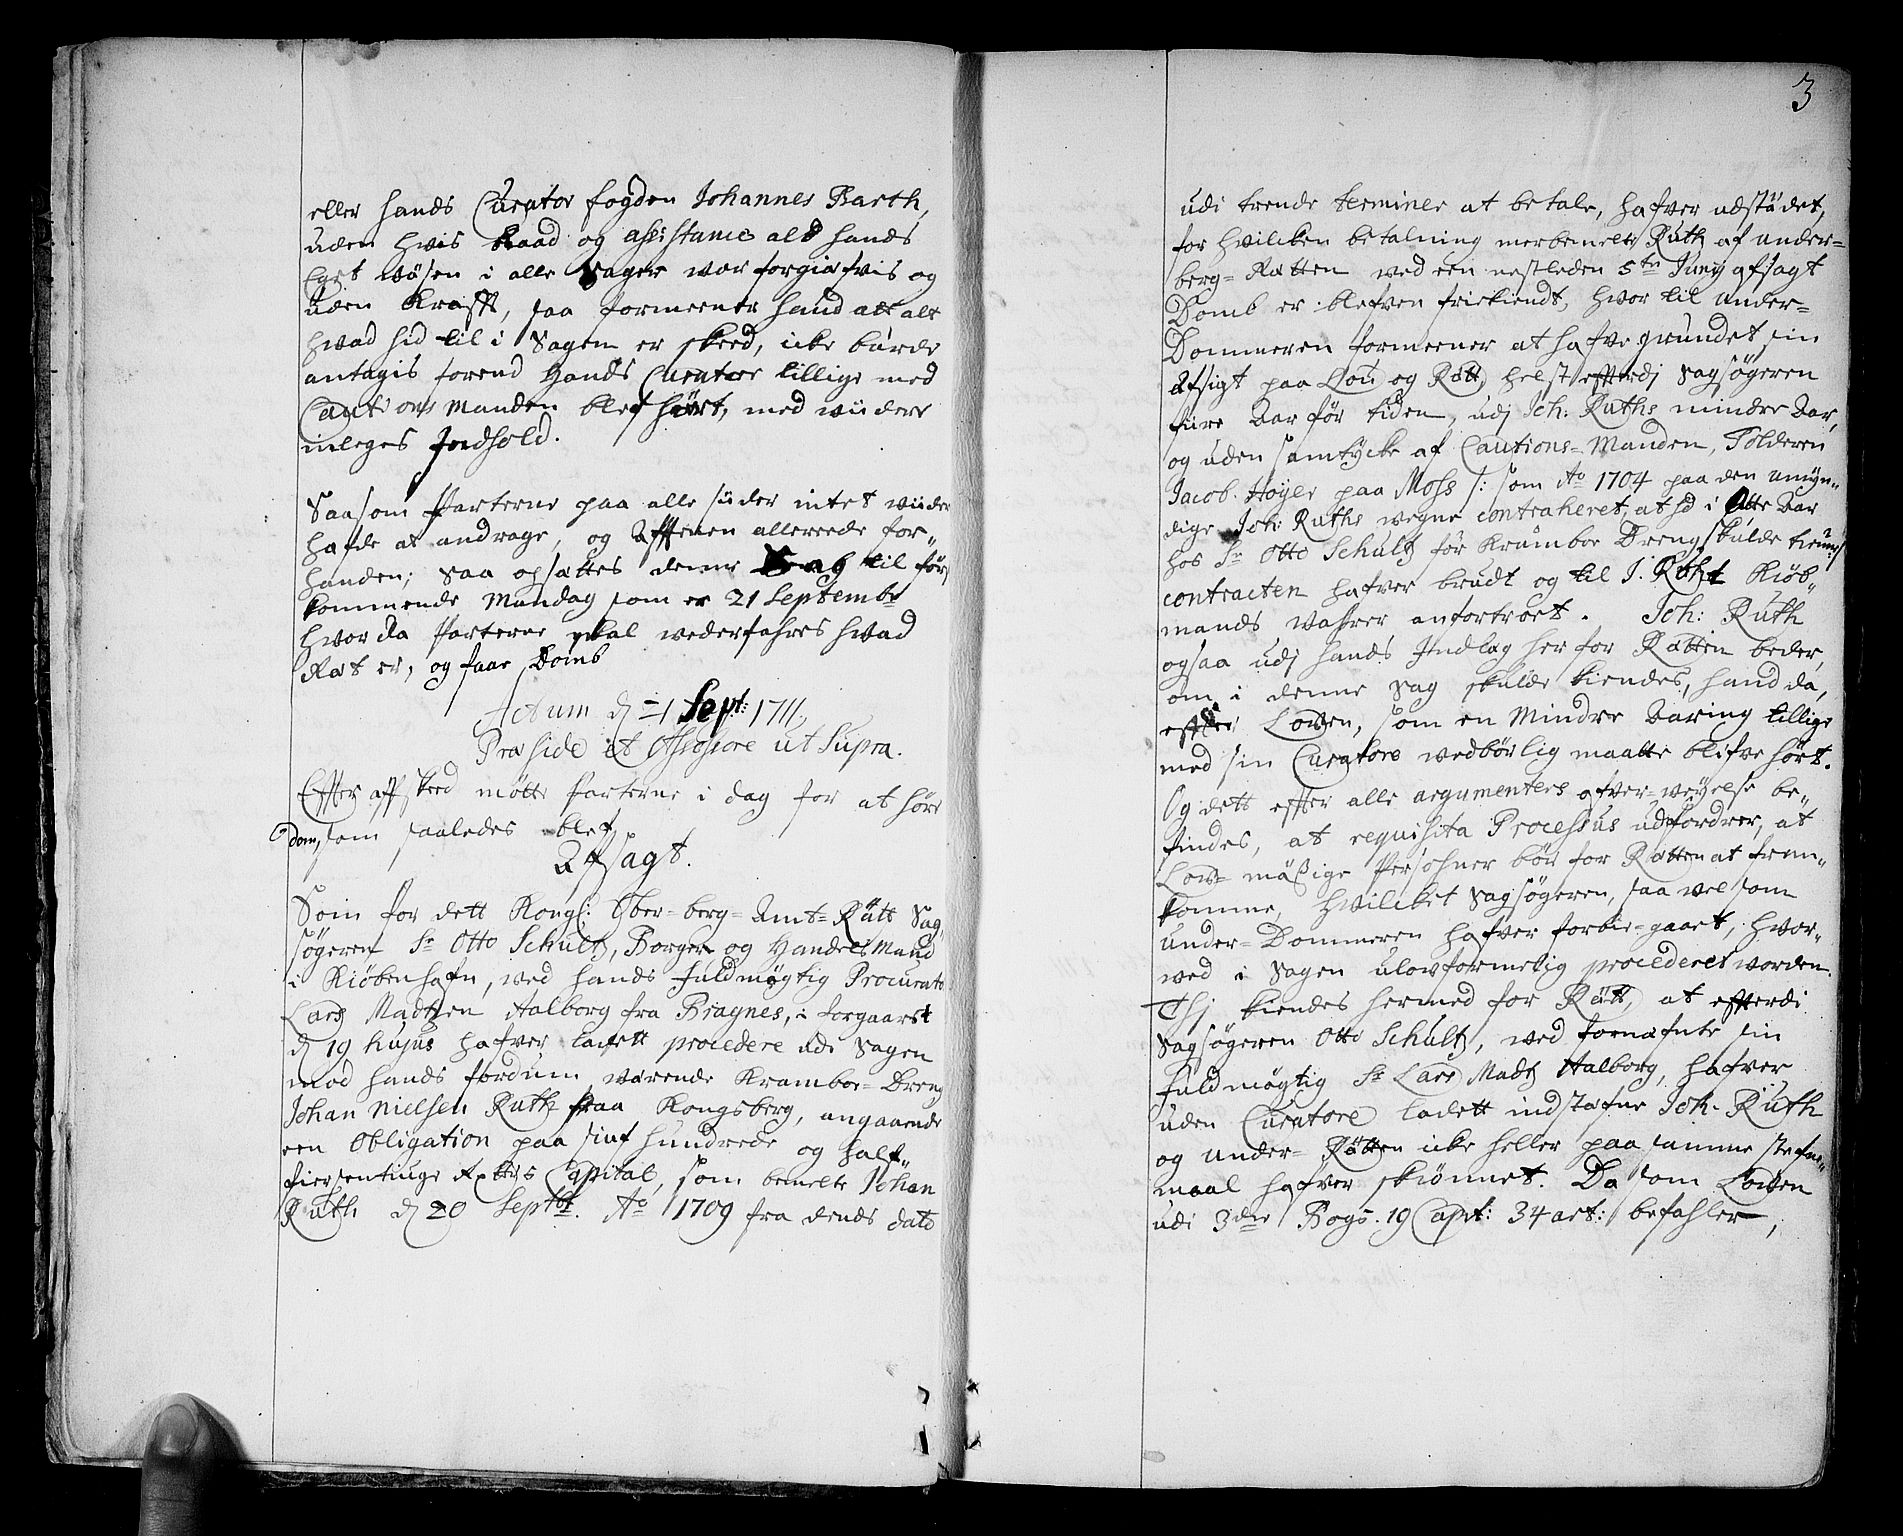 eller hands Curator fogden Johannes Barth,
uden hvis Raad og assistance alt hands
Eget wösen i alle Sager war forgiæfvis og
uden Krafft, saa formeener hand att alt
hvad hid til i Sagen er skeed, icke burde
antagis forend Hands Curator tillige med
Cautions Manden blef hört, med widere
inleges Indhold.
Saasom Parterne paa alle süder intet wider
hafde at andrage, og Acterne allereede for„
handen; saa opsættes denne Sag til først
kommende Mandag som er 21 Septembr
hvor da Parterne skal wederfahres hvad
Ræt er, og faae Domb
Actum d 21 Sept: 1711.
Præside et Assessore ut Supra.
Effter affskeed mötte Parterne i dag for at höre
dom, som saaledes blef
Afsagt.
Som for dett Kongl: Ober-berg-Amt-Rätt Sag
søgeren Sr Otto Schultz, Borger og Handels Mand
i Kiöbenhafn, ved hands fuldmøgtig Procurator
Lars Madtzen Aalborg fra Bragnes, i forgaarst
d 19 hujus hafver ladett procedere udi Sagen
mod hands fordum værende Kramboe-Dreng
Johan Nielsen Ruth fraa Kongsberg, angaaende
een Obligation paa siuf hundrede og half„
fiersentiuge Rxdlrs Capital, som bemelte Johan
Ruth d 20 Septbr. Ao 1709 fra dends dato
3
udi trende terminer at betale, hafver udstædet,
for hvilcken betalning merbemelte Ruth af under=
berg-Rætten ved een nestleden 5te Juny afsagt
Domb er blefven friekiendt, hvor til under-
Dommeren formeener at hafve grundet sin
Afsigt paa Lou og Rätt, helst efftterdj Sagsøgeren
fiire Aar för tiden, udj Joh: Ruths mindre Aar,
og uden samtycke af Cautions-Manden, Tolderen
Jacob Høyer paa Moss /: som Ao 1704 paa den umyn„
dige Joh: Ruths vegne contraheret, at hd i Otte Aar
hos Sr Otto Schultz för Kramboe Dreng skulde tienne :/
contracten hafver brudt og til J. Ruht Kiöb„
mands wahrer anfortroet. Joh: Ruth
ogsaa udj hands Indlæg her for Rætten beder,
om i denne Sag skulde kiendes, hand da,
effter Lowen, som en Mindre Aaring tillige
med sin Curatore wedbörlig maatte blifve hört.
Og dett effter alle argumenters ofver-weyelse be„
findes, at requisita Processus udfordrer, at
Lov-mäßige Persohner bör for Rætten at frem„
komme, hvilcket Sagsøgeren, saa vel som
under-Dommeren hafver forbie-gaaet, hvor„
ved i Sagen ulovformelig procederet worden.
Thj kiendes hermed for Rätt, at effterdi
Sagsøgeren Otto Schultz, ved fornæfnte sin
fuldmøgtig Sr Lars Madtz Aalborg, hafver
uden Curatore ladett indstæfne Joh. Ruth
og under-Rätten icke heller paa samme stefne„
maal hafver skiönnet. Da som Lowen
udi 3die Bogs. 19 Capit: 34 art: befahler,